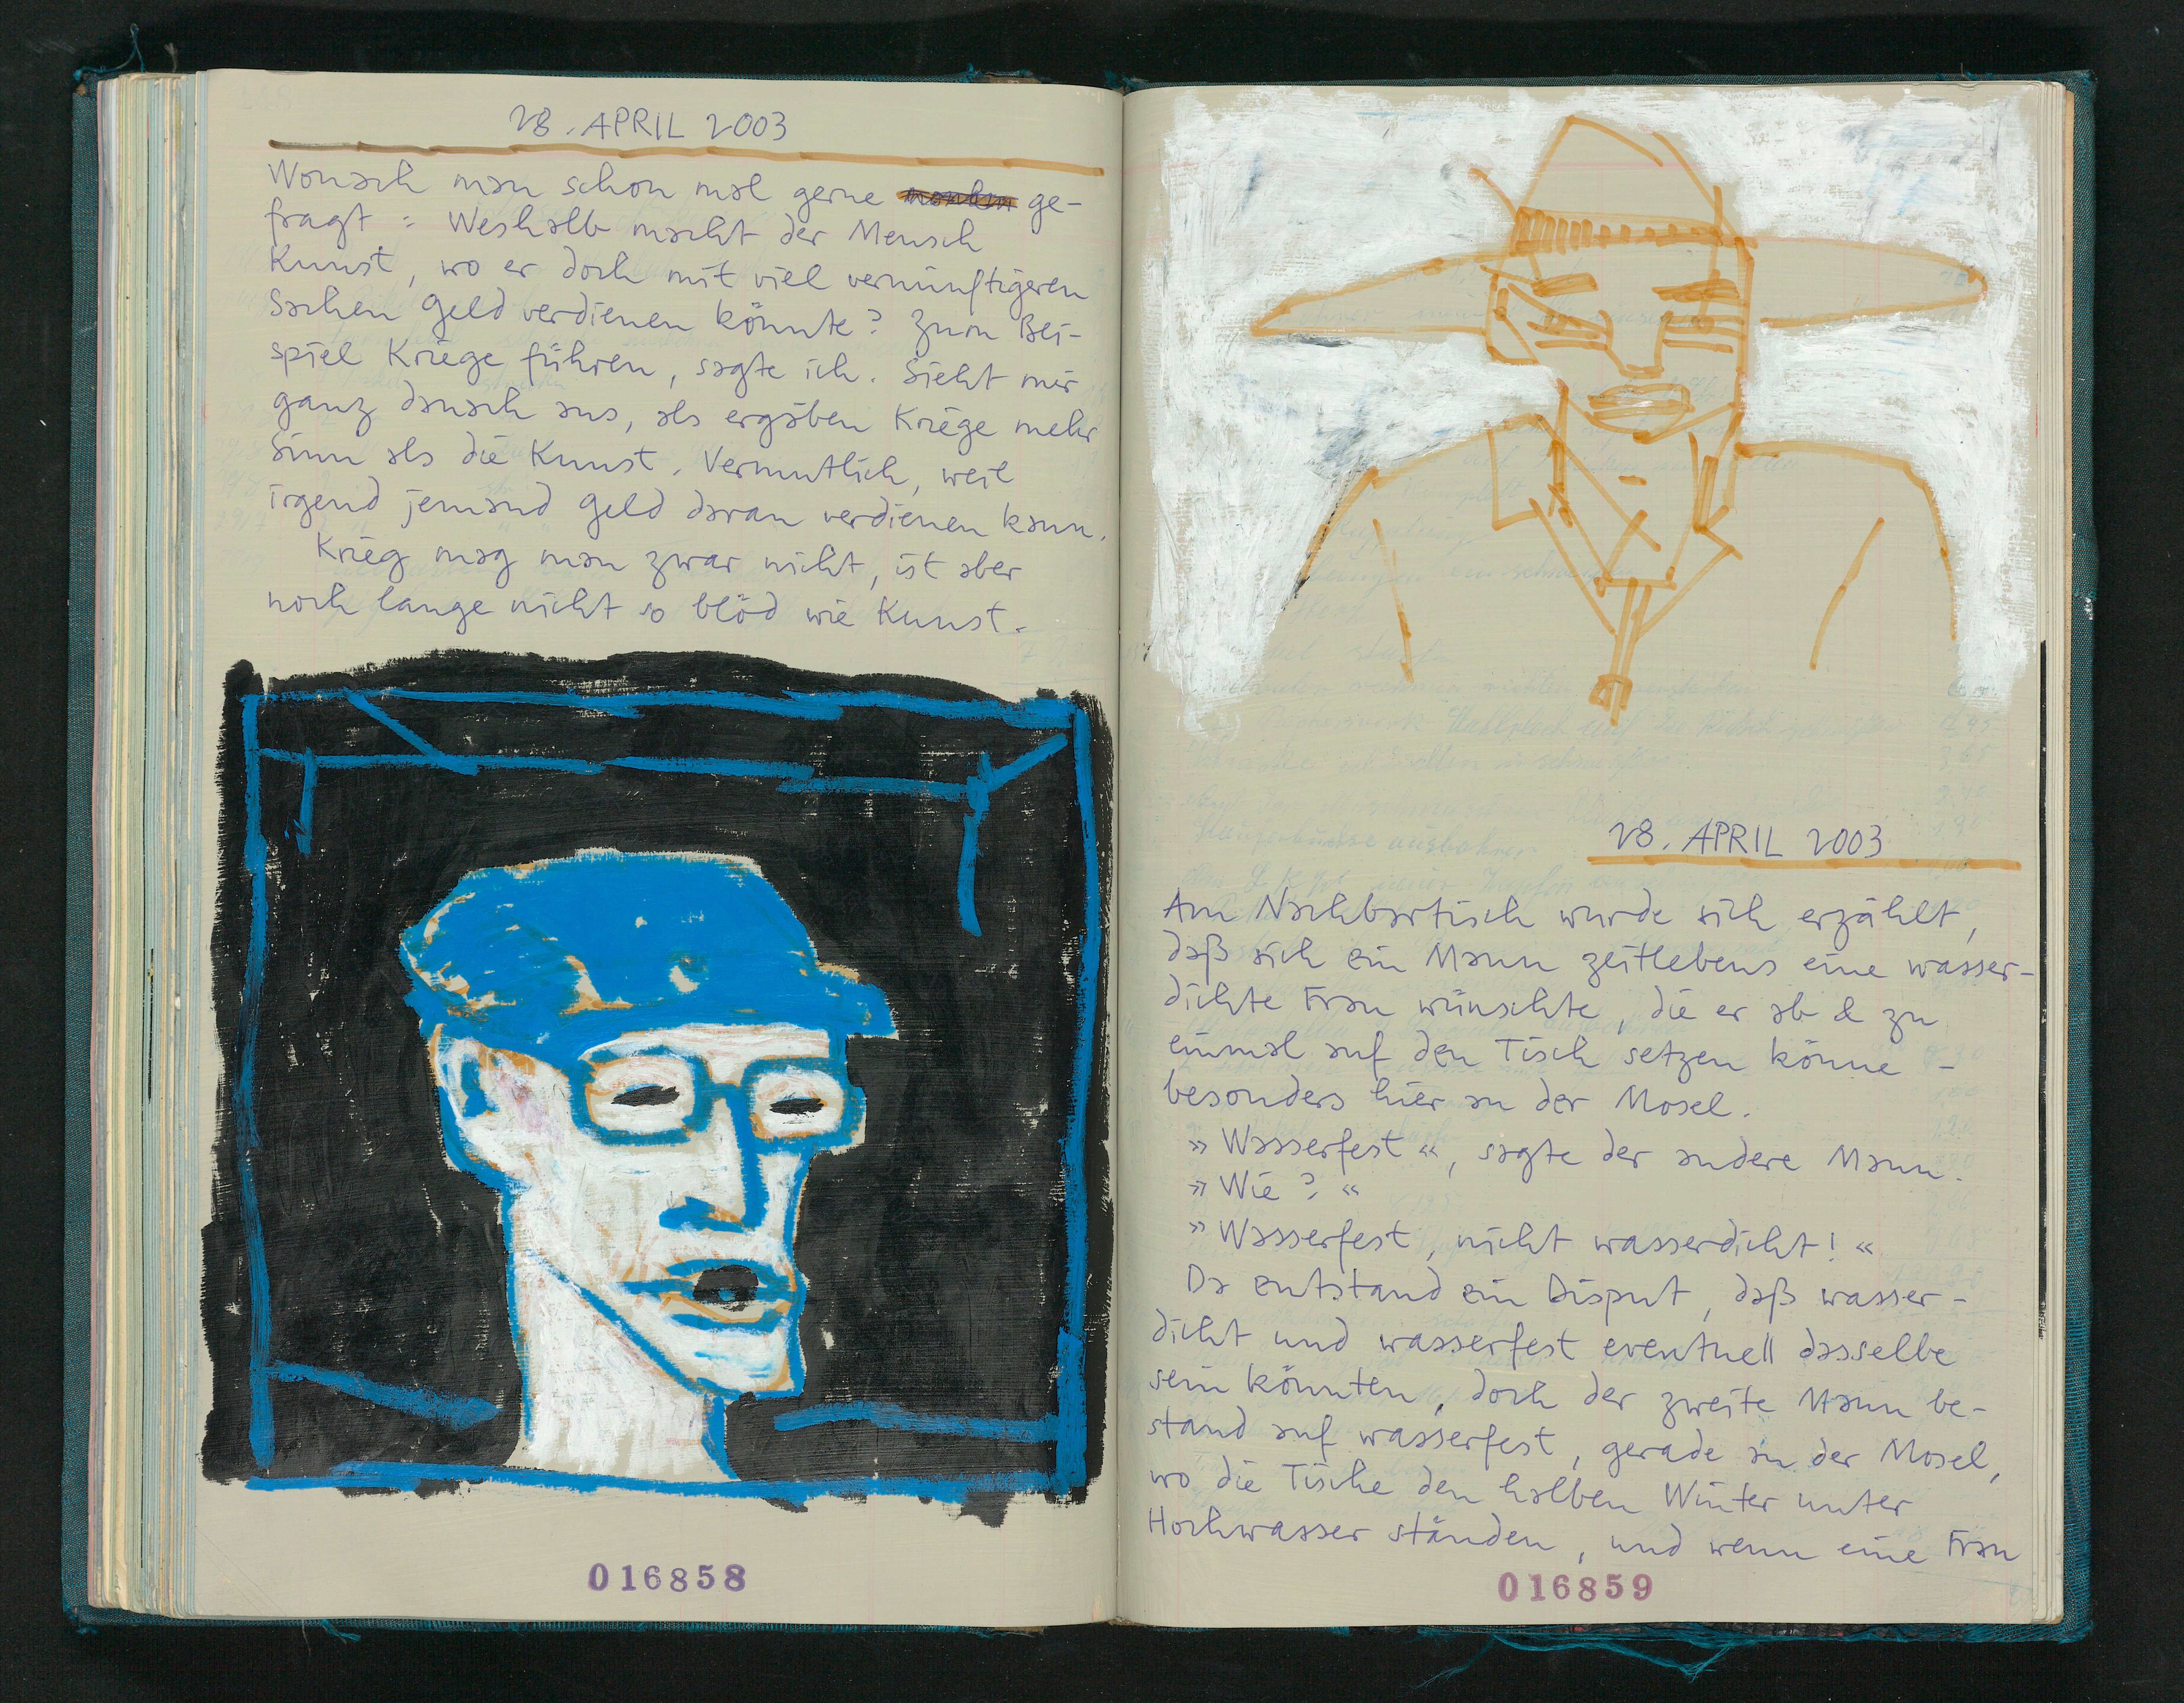 28. APRIL 2003
Wonach man schon mal gerne ge-
fragt : Weshalb macht der Mensch
Kunst, wo er doch mit viel vernünftigeren
Sachen Geld verdienen könnte? Zum Bei-
spiel Kriege führen, sagte ich. Sieht mir
ganz danach aus, als ergäben Kriege mehr
Sinn als die Kunst. Vermutlich, weil
irgend jemand Geld daran verdienen kann.
Krieg mag man zwar nicht, ist aber
noch lange nicht so blöd wie Kunst.
016858
28. APRIL 2003
Am Nachbartisch wurde sich erzählt,
daß sich ein Mann zeitlebens eine wasser-
dichte Frau wünschte, die er ab & zu
einmal auf den Tisch setzen könne –
besonders hier an der Mosel.
» Wasserfest «, sagte der andere Mann.
» Wie? «
» Wasserfest, nicht wasserdicht! «
Da entstand ein Disput, daß wasser-
dicht und wasserfest eventuell dasselbe
sein könnten, doch der zweite Mann be-
stand auf wasserfest, gerade an der Mosel,
wo die Tische den halben Winter unter
Hochwasser ständen, und wenn eine Frau
016859